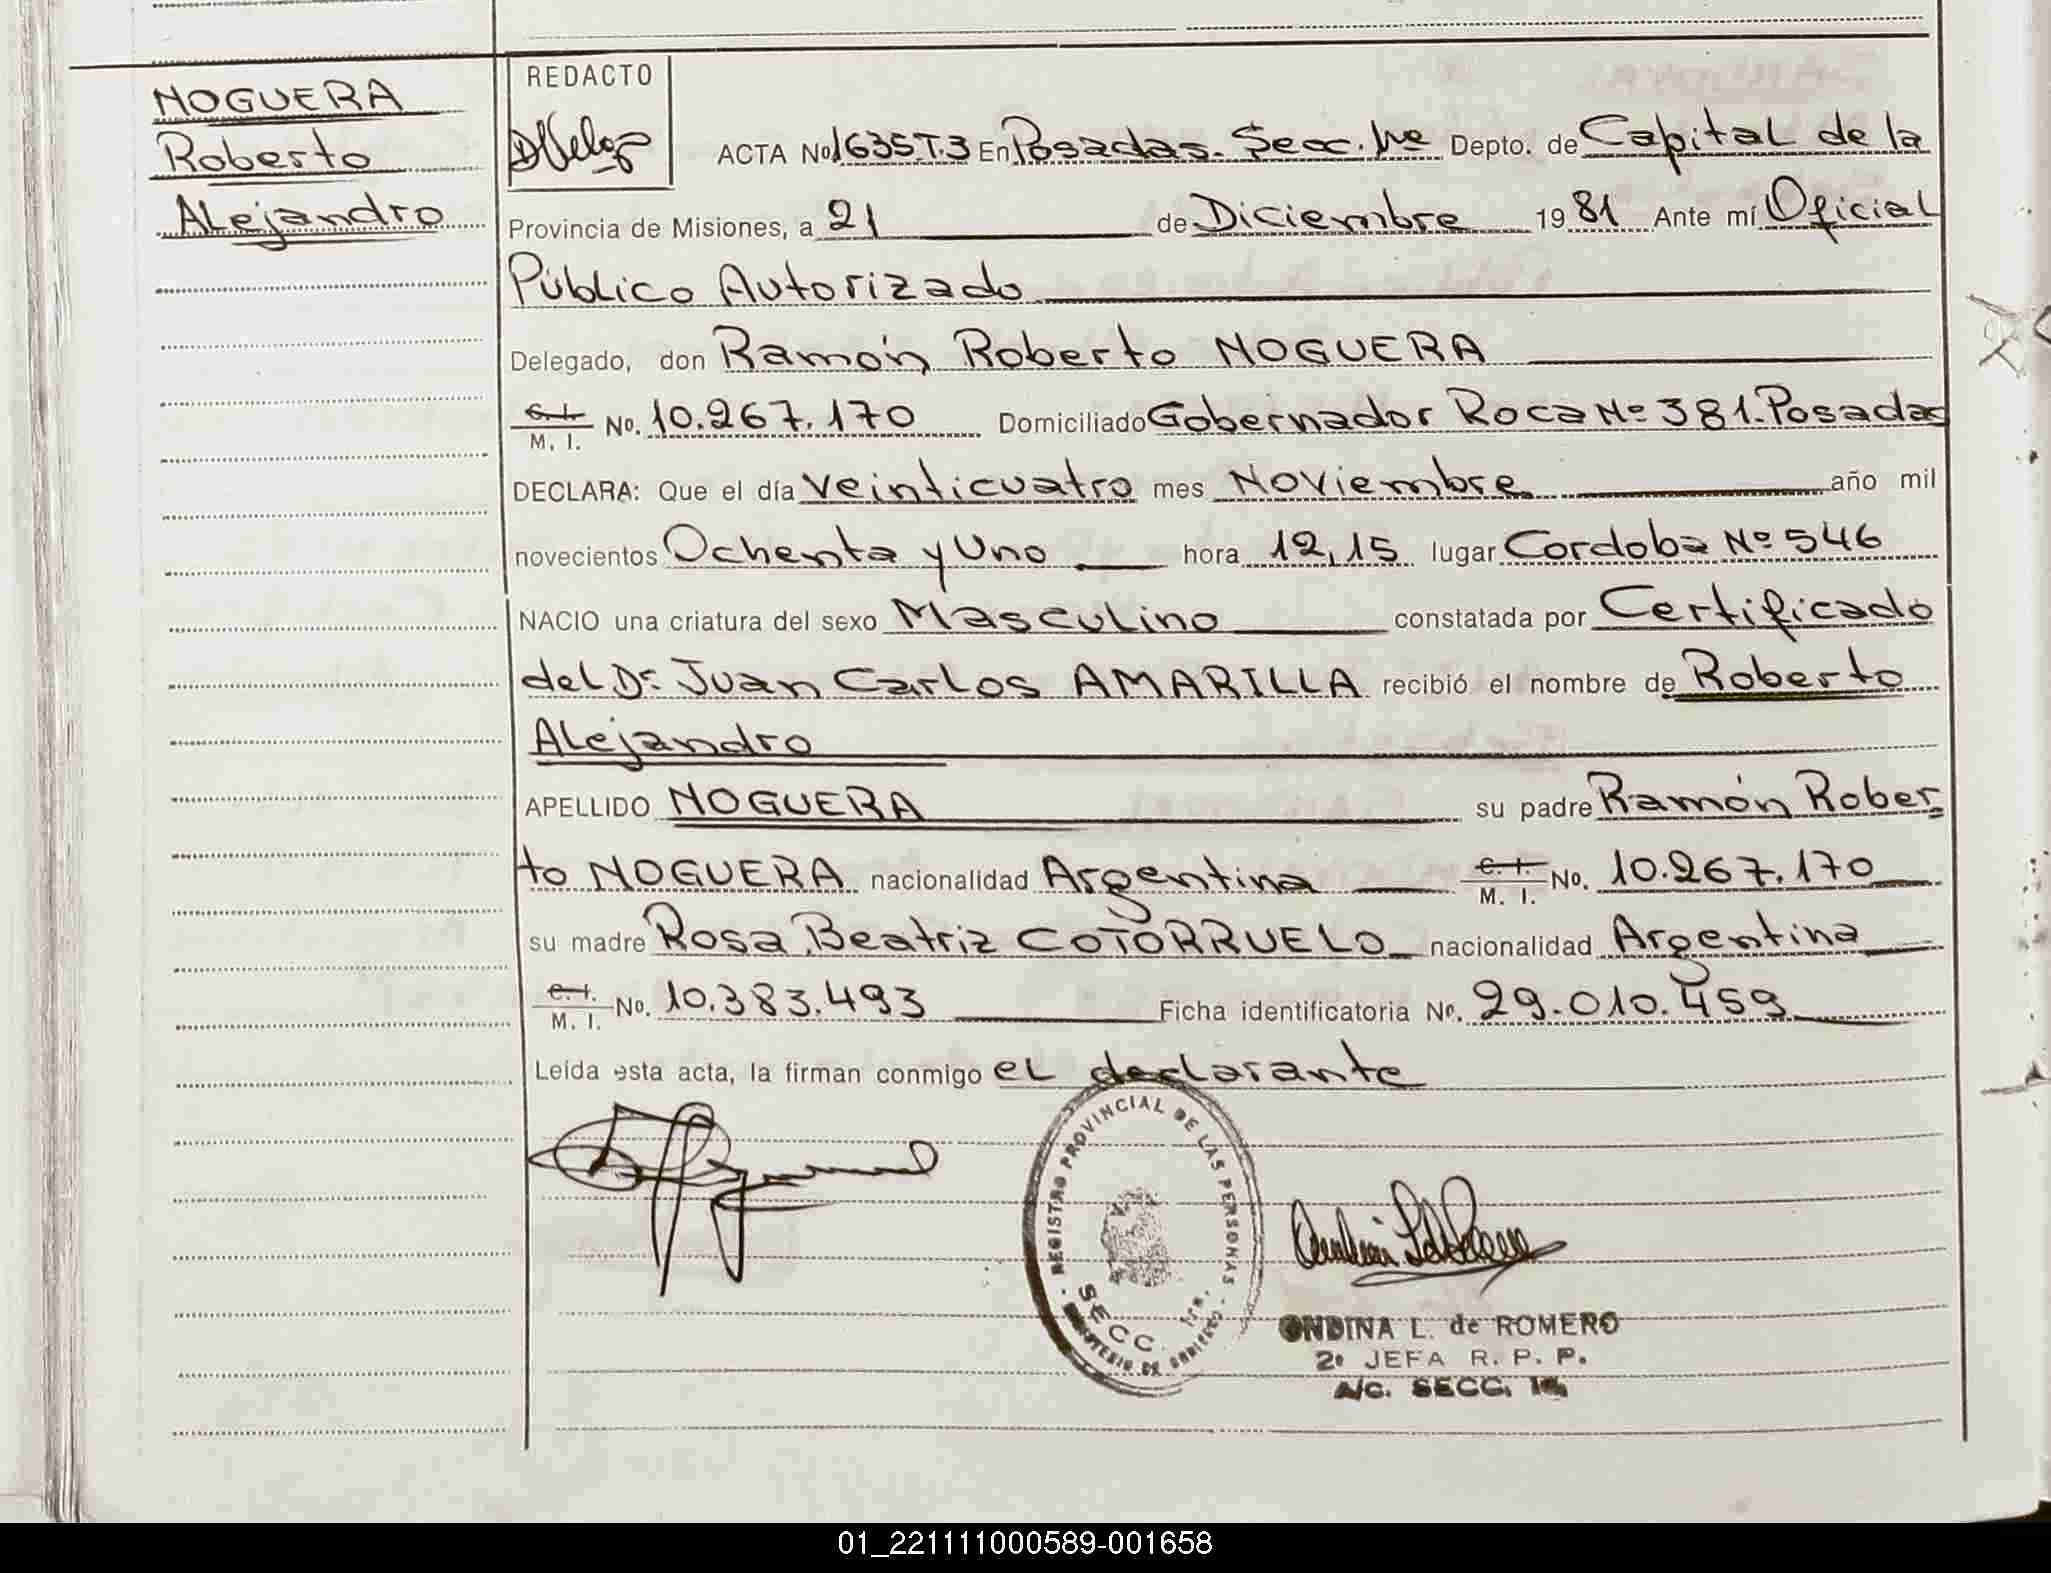 NOGUERA
Roberto
Alejandro
REDACTO
ACTA No 1635 T.3 En Posadas. Secc. 1ra Depto. de Capital de la
Provincia de Misiones, a 21 de Diciembre 1981 Ante mí Oficial
Público Autorizado
Delegado, don Ramón Roberto NOGUERA
C. I. M. I. No. 10.267.170 Domiciliado Gobernador Roca No 381. Posadas
DECLARA: Que el día veinticuatro mes Noviembre año mil
novecientos Ochenta y Uno hora 12,15 lugar Cordoba No 546
NACIO una criatura del sexo Masculino constatada por Certificado
del Dr. Juan Carlos AMARILLA recibió el nombre de Roberto
Alejandro
APELLIDO NOGUERA su padre Ramón Rober
to NOGUERA nacionalidad Argentina C. I. M. I. No. 10.267.170
su madre Rosa Beatriz COTORRUELO nacionalidad Argentina
C. I. M. I. No. 10.383.493 Ficha identificatoria No. 29.010.459
Leída esta acta, la firman conmigo el declarante
REGISTRO PROVINCIAL DE LAS PERSONAS
SECC. 1ra.
MINISTERIO DE GOBIERNO
ONDINA L. de ROMERO
2º JEFA R. P. P.
A/C. SECC. 1ra
01_221111000589-001658